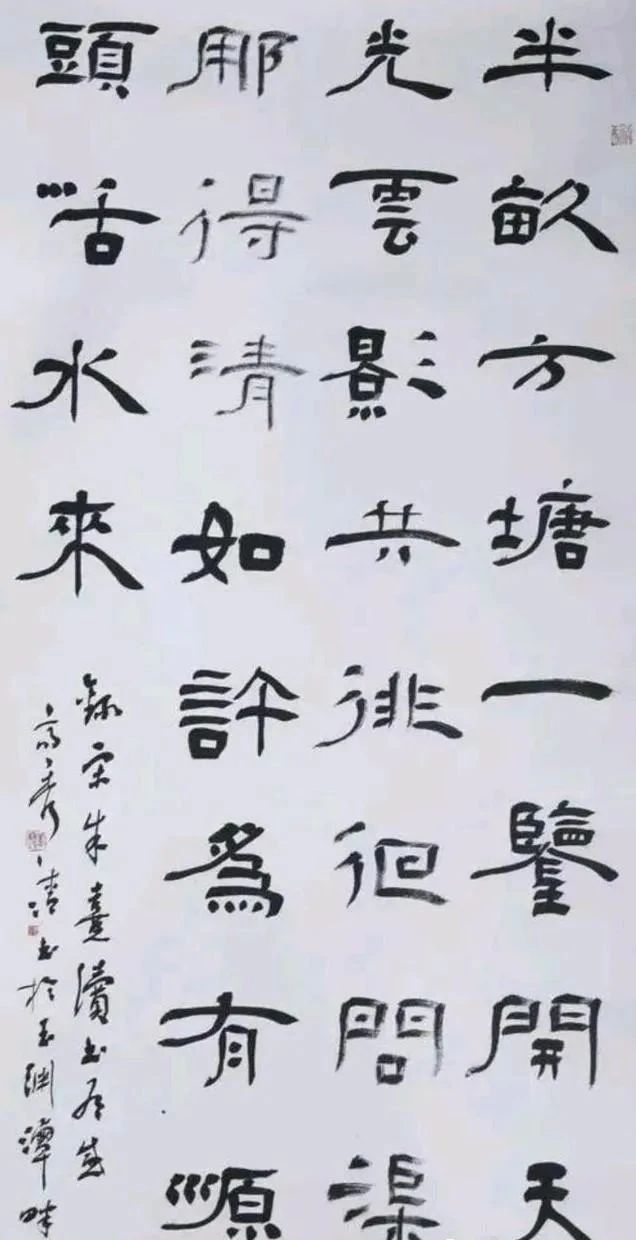 半畝方塘一鑒開天
光雲影共徘徊問渠
那得清如許為有源
頭活水來
錄宋朱熹讀書有感
高秀清書於玉淵潭畔